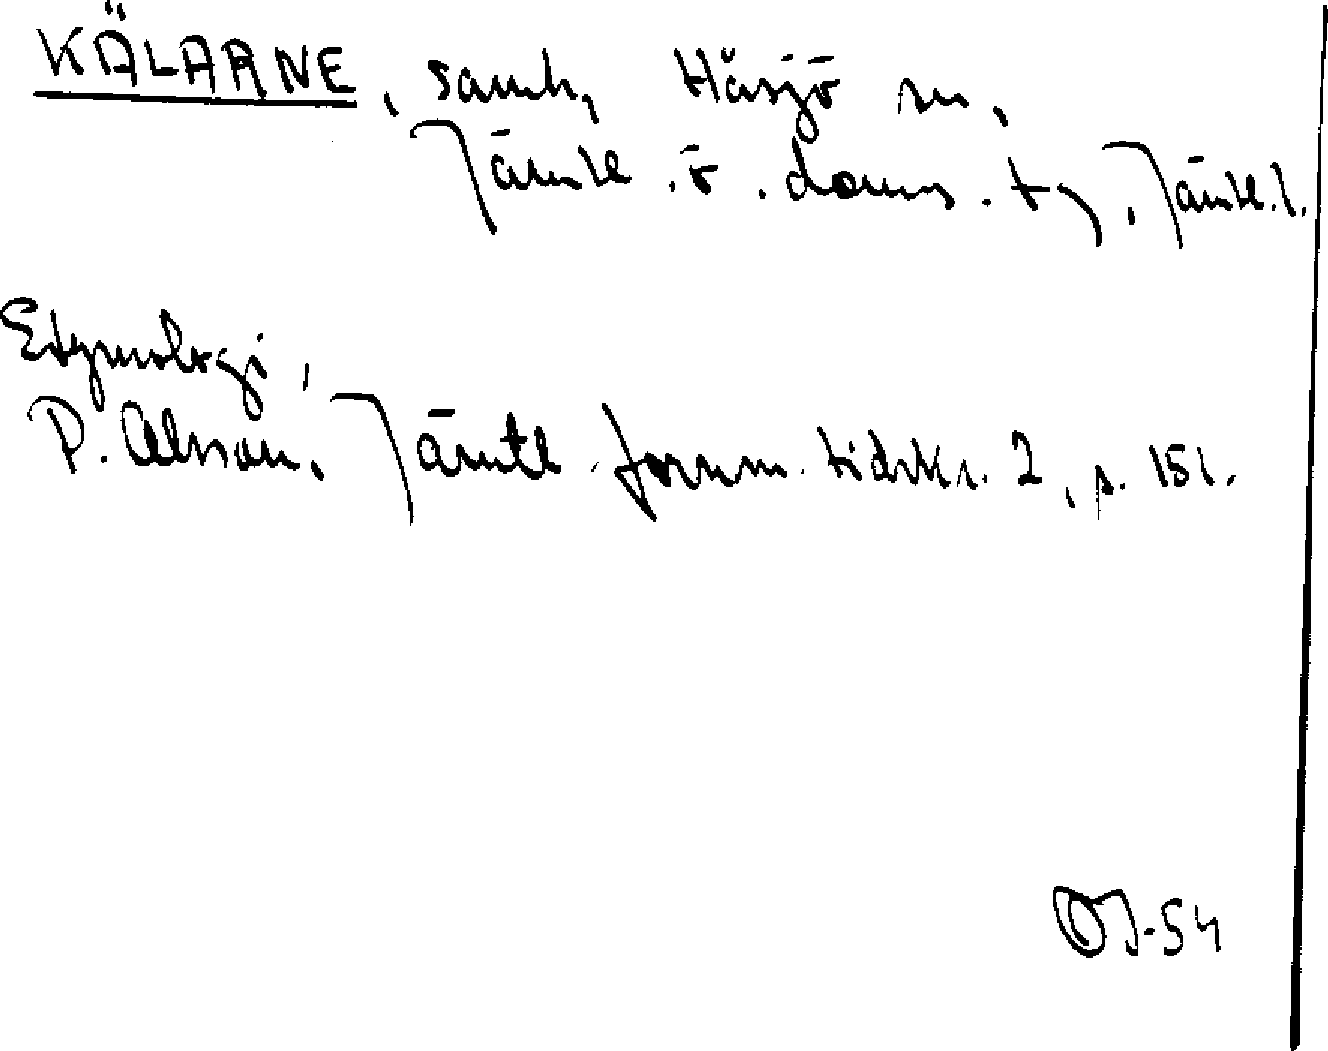 KÄLARNE, samh, Håsjö sn,
Jämtl. ö. doms. tg, Jämtl. l.
Etymologi,
P. Olsson, Jämtl. fornm. tidskr. 2, s. 151.
OJ-54